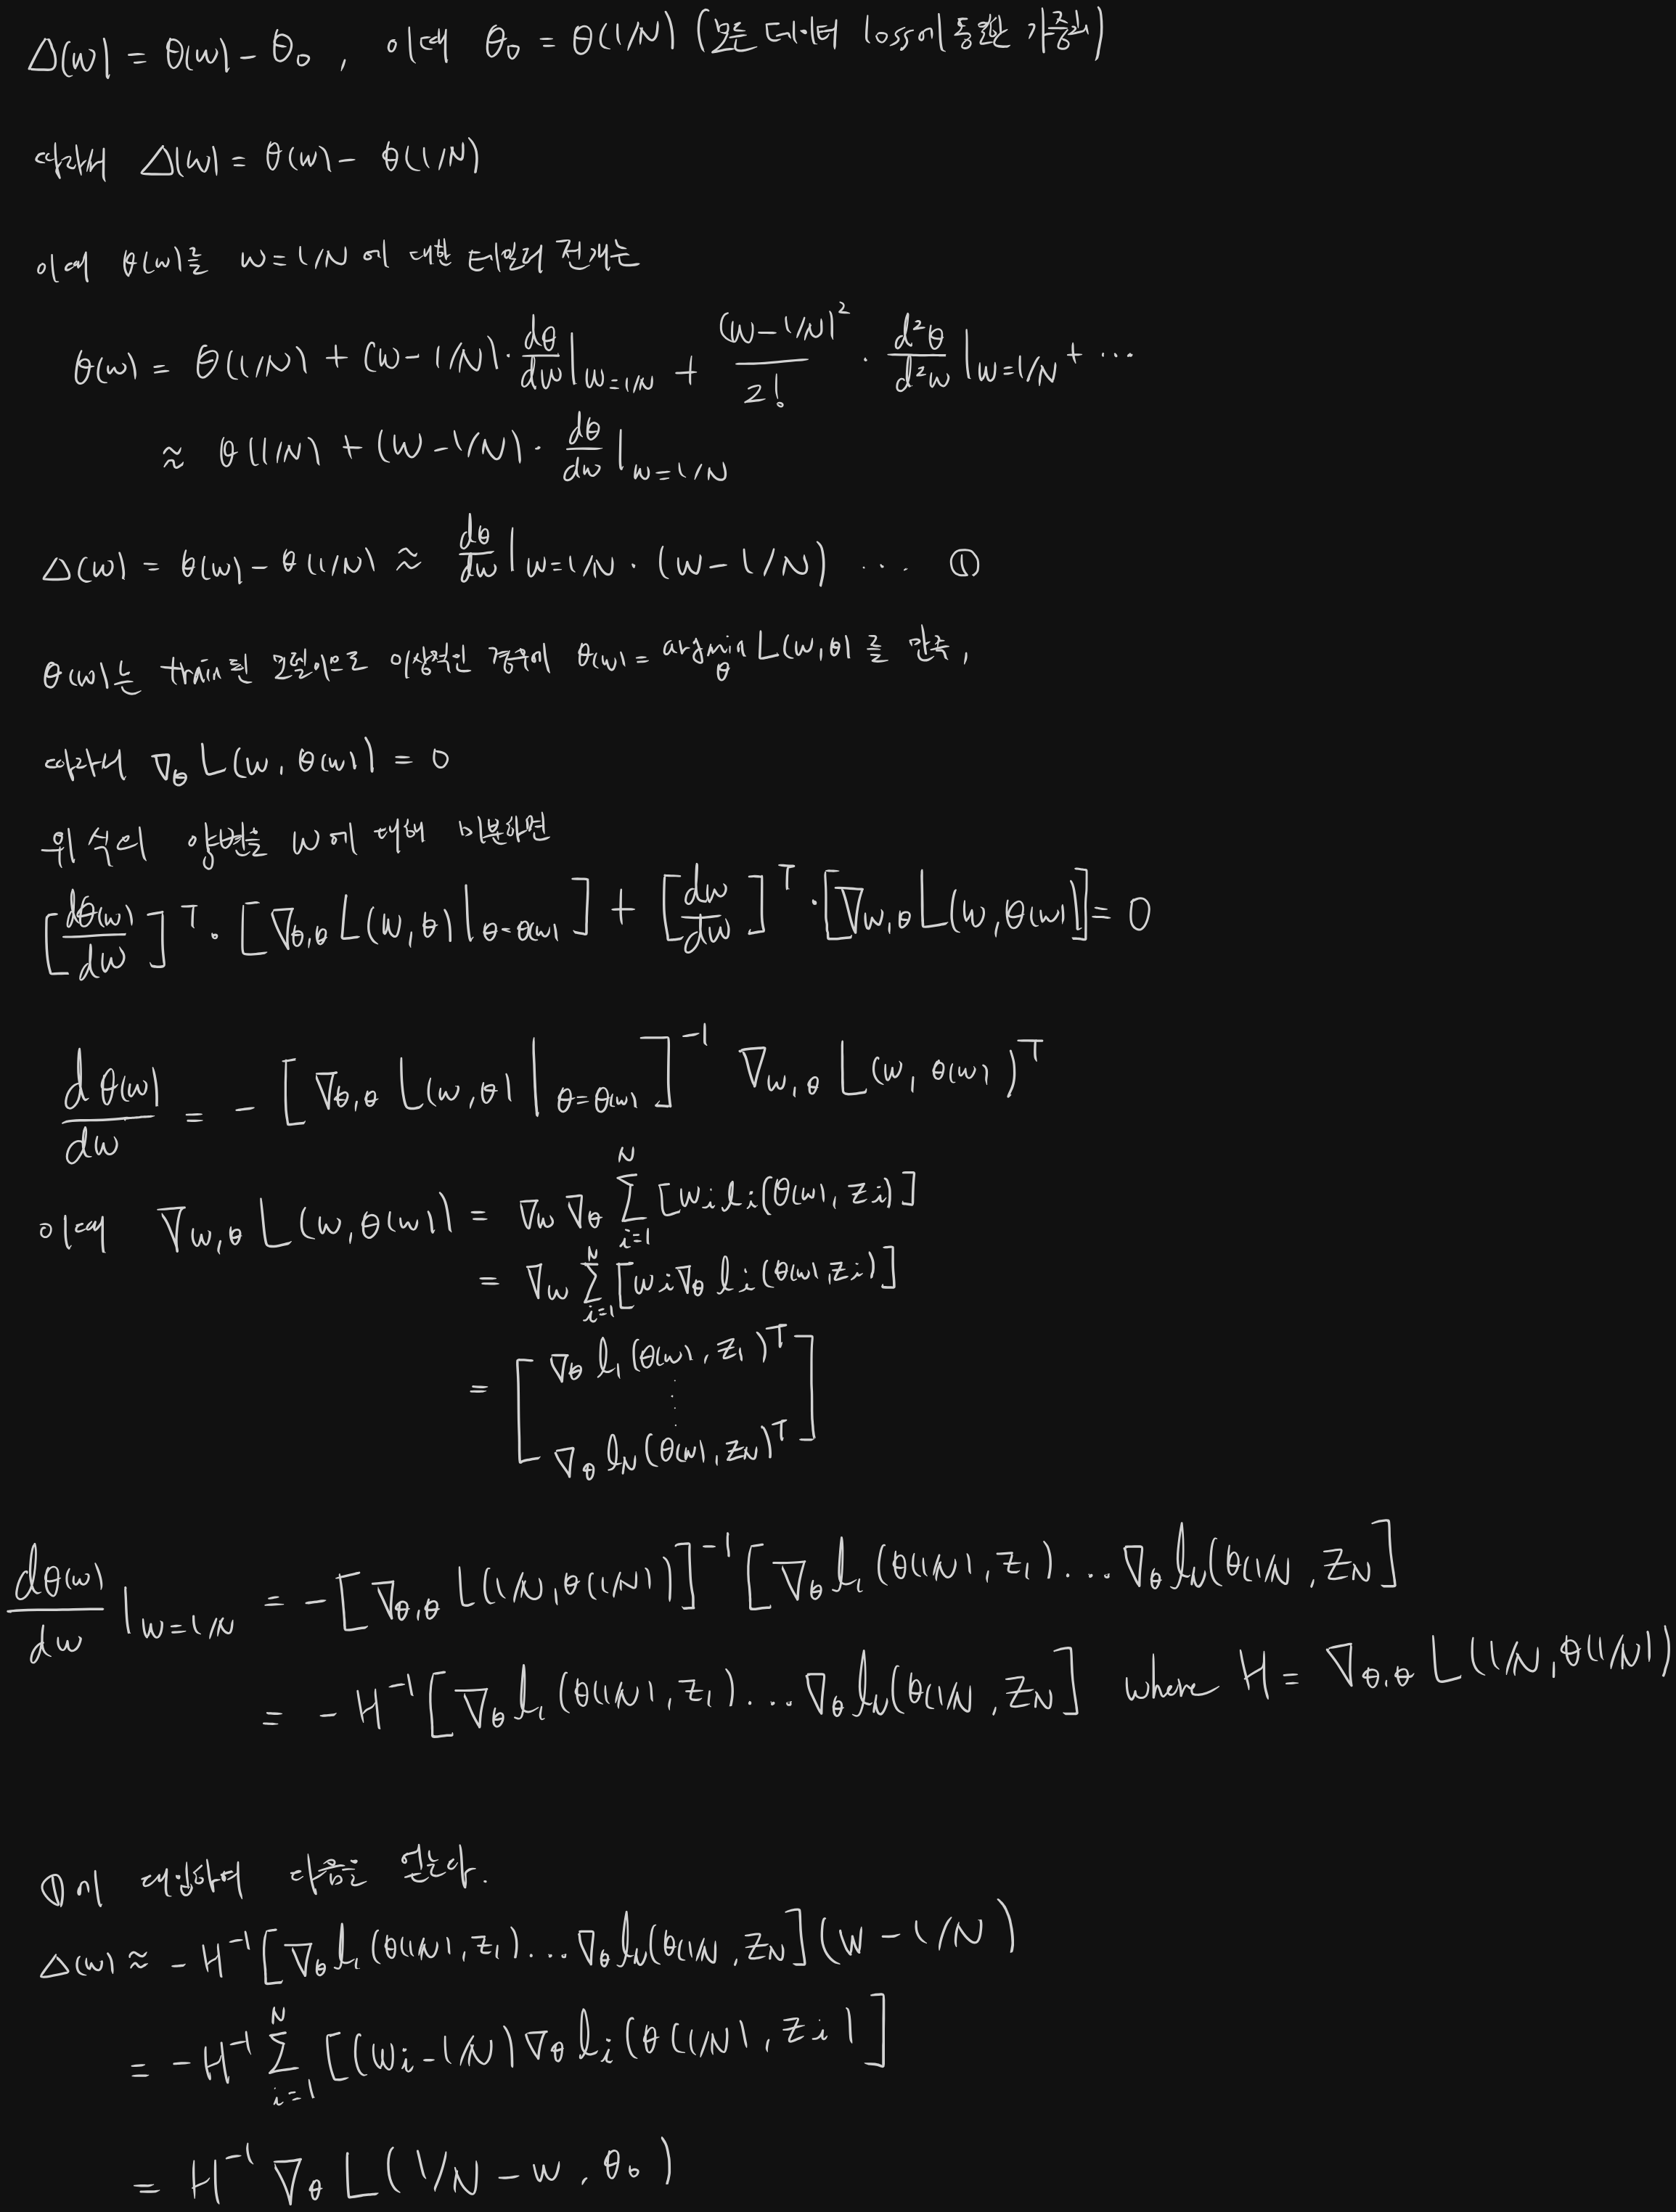 Δ(w) = θ(w) - θ₀ , 이때 θ₀ = θ(1/N) (모든 데이터 loss에 동일한 가중치)
따라서 Δ(w) = θ(w) - θ(1/N)
이때 θ(w)를 w=1/N 에 대한 테일러 전개는
θ(w) = θ(1/N) + (w-1/N)·dθ/dw|w=1/N + (w-1/N)²/2! · d²θ/d²w|w=1/N + ···
≈ θ(1/N) + (w-1/N)· dθ/dw|w=1/N
Δ(w) = θ(w) - θ(1/N) ≈ dθ/dw|w=1/N · (w-1/N) ··· ①
θ(w)는 train된 모델이므로 이상적인 경우에 θ(w) = argmin θ L(w,θ)를 만족,
따라서 ∇θ L(w, θ(w)) = 0
위 식의 양변을 w에 대해 미분하면
[dθ(w)/dw]ᵀ · [∇θ,θ L(w,θ)|θ=θ(w)] + [dw/dw]ᵀ · [∇w,θ L(w,θ(w)] = 0
dθ(w)/dw = - [∇θ,θ L(w,θ)|θ=θ(w)]⁻¹ ∇w,θ L(w, θ(w))ᵀ
이때 ∇w,θ L(w,θ(w)) = ∇w ∇θ Σ i=1 N [wi li(θ(w), zi)]
= ∇w Σ i=1 N [wi ∇θ li(θ(w), zi)]
= [∇θ l1(θ(w), z1)ᵀ
⋮
∇θ lN(θ(w), zN)ᵀ]
dθ(w)/dw|w=1/N = -[∇θ,θ L(1/N, θ(1/N))]⁻¹ [∇θ l1(θ(1/N), z1)...∇θ lN(θ(1/N, zN]
= -H⁻¹[∇θ l1(θ(1/N), z1)...∇θ lN(θ(1/N), zN] where H = ∇θ,θ L(1/N, θ(1/N))
①에 대입하여 다음을 얻는다.
Δ(w) ≈ -H⁻¹[∇θ l1(θ(1/N), z1)...∇θ lN(θ(1/N, zN](w-1/N)
= -H⁻¹ Σ i=1 N [(wi-1/N)∇θ li(θ(1/N), zi)]
= H⁻¹ ∇θ L(1/N - w, θ₀)